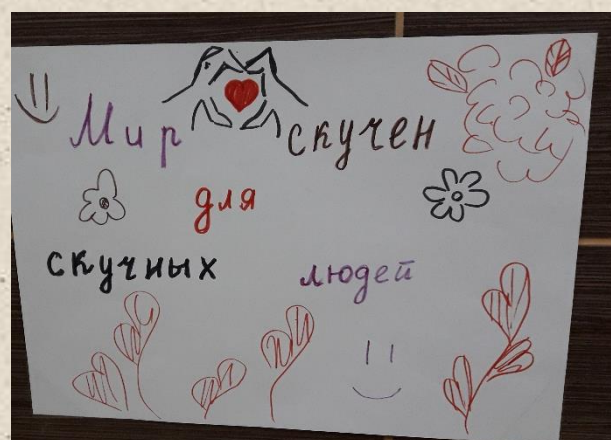 Мир скучен
для
скучных людей